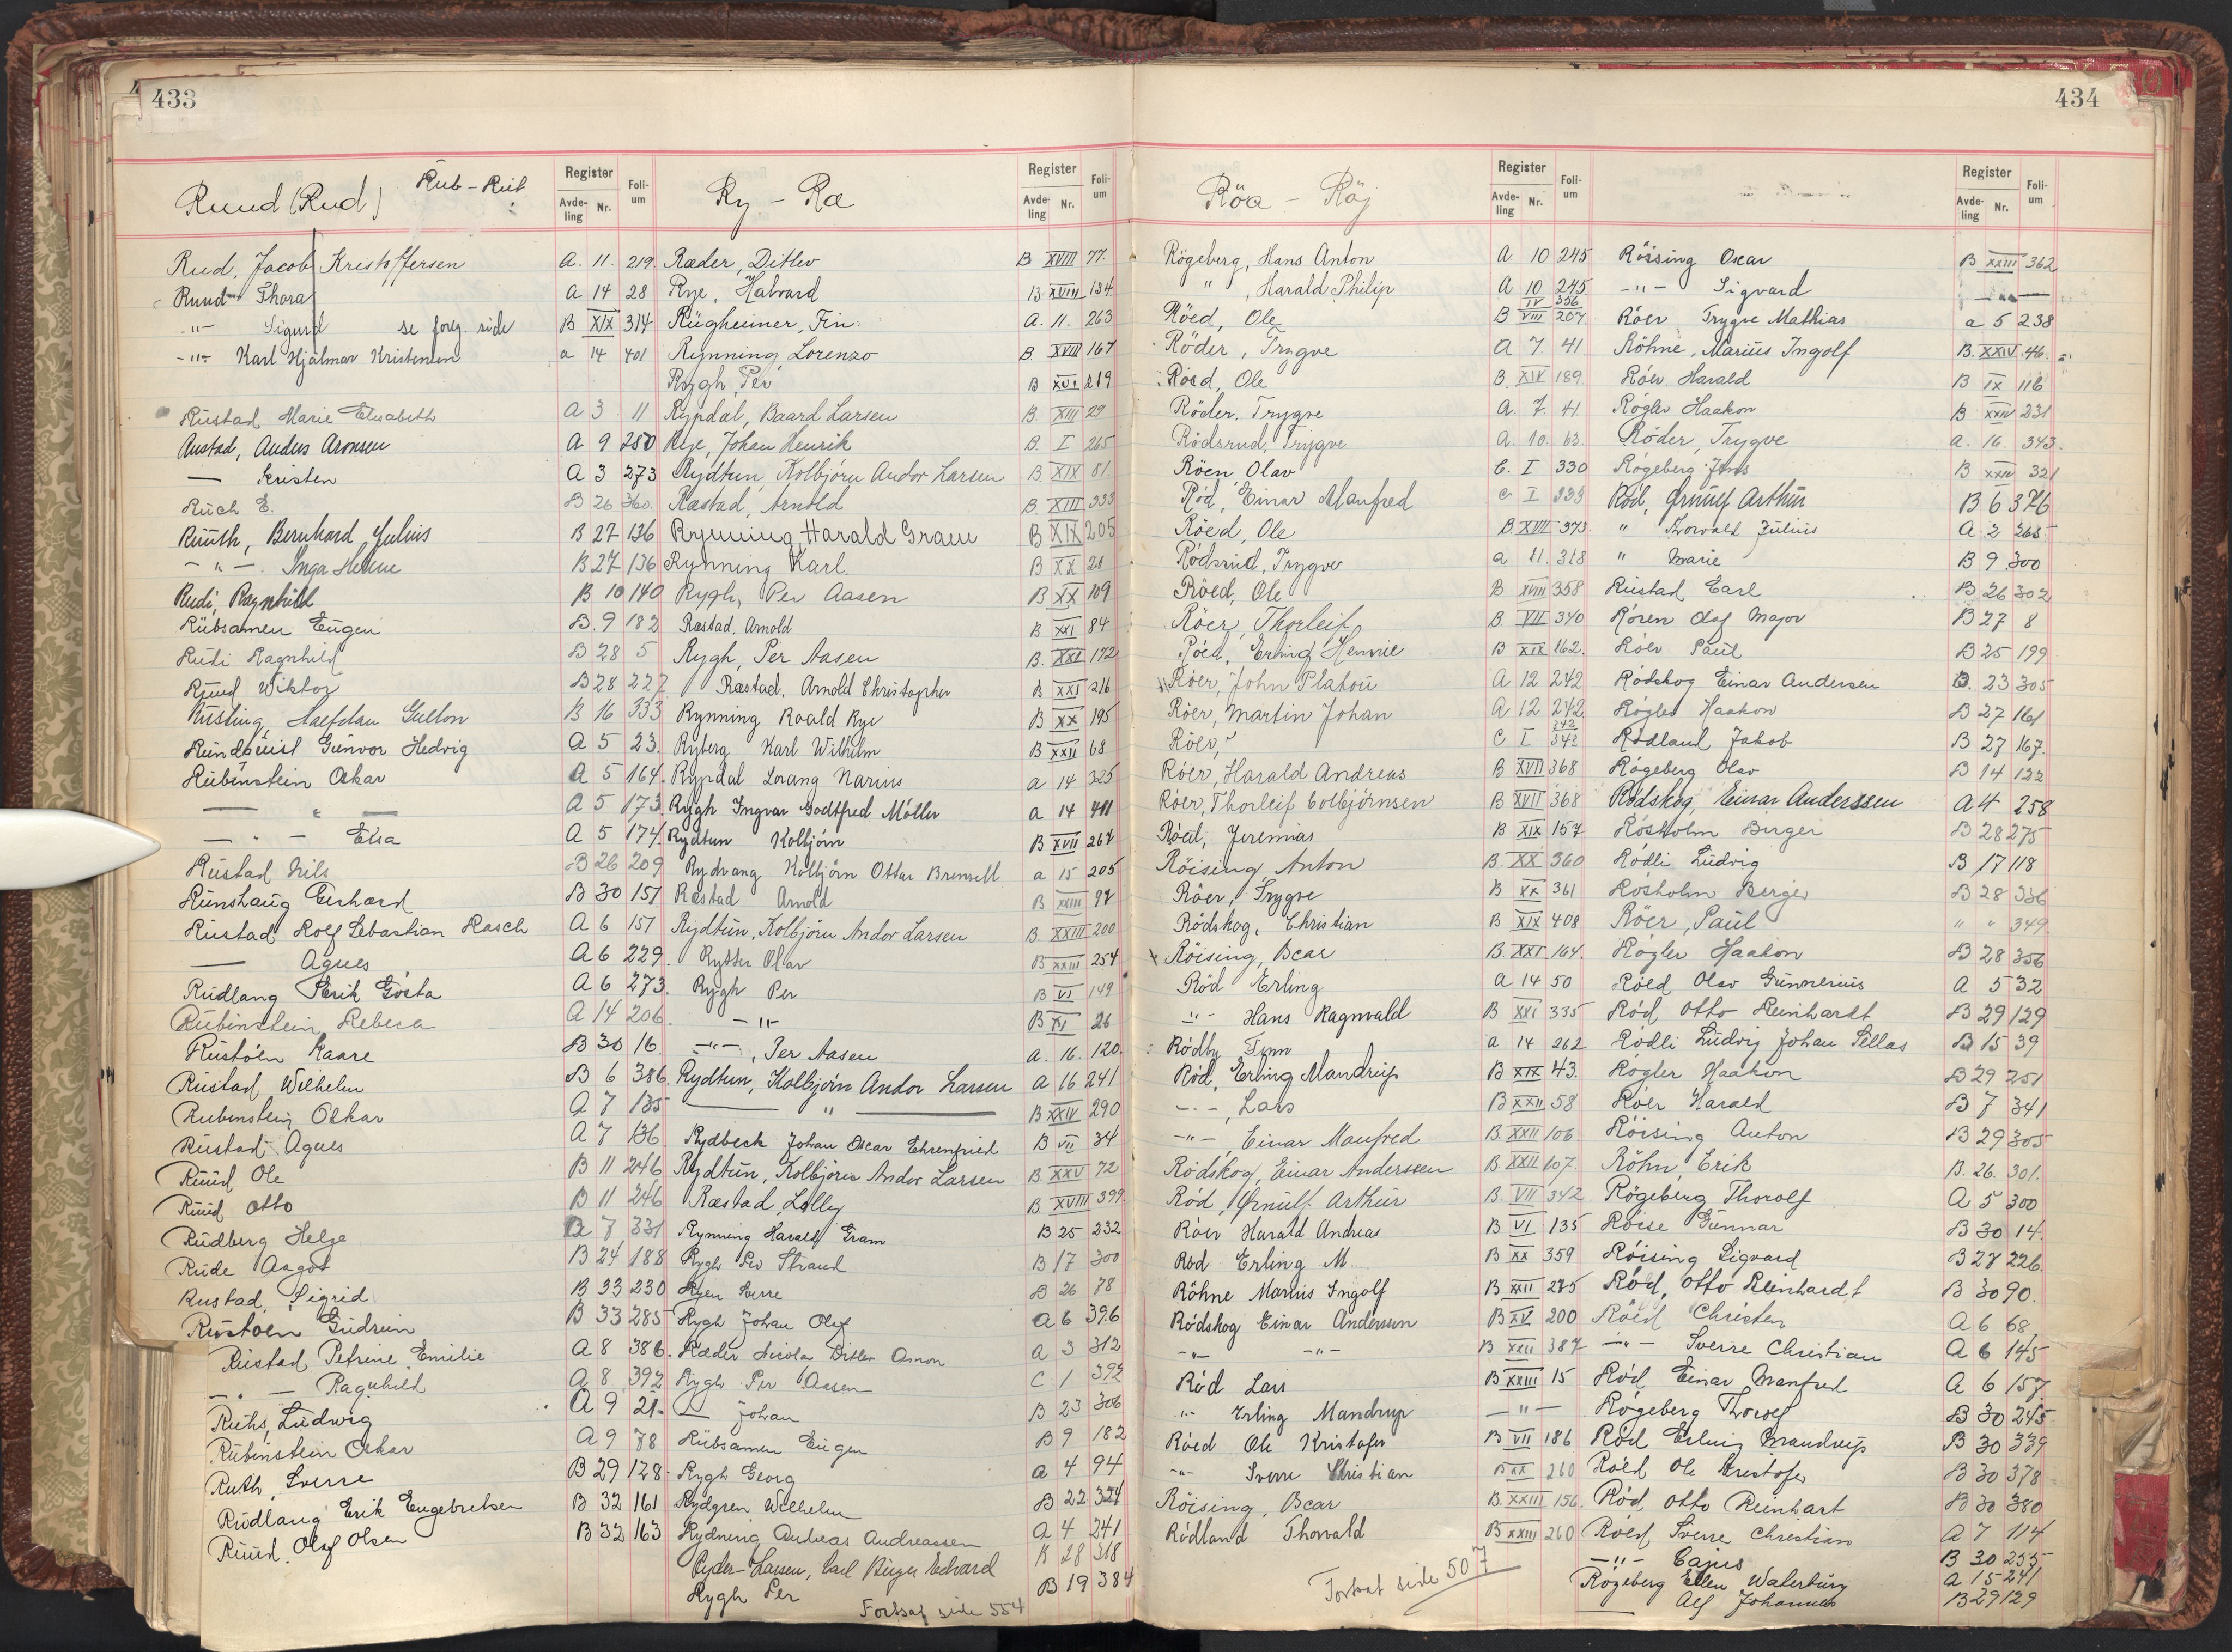 433
Register
Avde-ling Nr.
Foli-um
Ruud (Rud)
Rub - Rut
Rud, Jacob Kristoffersen A. 11. 219
Ruud Thora A 14 28
-"- Sigurd se foreg. side B XIX 314
-"- Karl Hjalmar Kristensen a 14 401
Rustad Marie Elisabeth A 3 11
Rustad, Anders Aronsen A 9 280
— Kristen A 3 273
Ruch E. B 26 360.
Ruuth, Bernhard Julius B 27 136
- " - Inga Helene B 27 136
Rudi, Ragnhild B 10 140
Rübsamen Eugen B. 9 182
Rudi Ragnhild B 28 5
Ruud Wiktor B 28 227
Rusting Halfdan Gulton B 16 333
Rundquist Gunvor Hedvig A 5 23.
Rubinstein Oskar A 5 164.
— " — A 5 173
— " — Elsa A 5 174.
Rustad Nils B 26 209
Runshaug Gerhard B 30 151
Rustad Rolf Sebastian Rasch A 6 151
— Agnes A 6 229.
Rudlang Erik Gösta A 6 273.
Rubinstein Rebeca A 14 206.
Rustöen Kaare B 30 16.
Rustad Wilhelm B 6 386.
Rubinstein Oskar A 7 135
Rustad Agnes A 7 136
Ruud Ole B 11 246
Ruud Otto B 11 246
Rudberg Helge B 7 331
Rude Aagot B 24 188
Rustad, Sigrid B 33 230
Rustoen Gudrun B 33 285
Rustad Petrine Emilie A 8 386.
- " - Ragnhild A 8 392
Ruths, Ludwig A 9 21.
Rubinstein Oskar A 9 78
Ruth, Sverre B 29 128
Rudlang Erik Engebretsen B 32 161
Ruud. Olaf Olsen B 32 163
Register
Avde-ling Nr.
Foli-um
Ry - Ræ
Ræder, Ditlev B XVIII 77.
Rye, Halvard B. XVIII 134.
Rügheimer, Fin. A. 11. 263
Rynning Lorenzo B. XVIII 167
Rygh, Per B XVI 219
Rypdal, Baard Larsen B. XIII 29
Rye, Johan Henrik B. I 265
Rydtun, Kolbjörn Andor Larsen B XIX 81
Ræstad, Arnold B. XIII 333
Rynning, Harald Gram B XIX 205
Rynning Karl. B XX 21
Rygh, Per Aasen B XX 109
Ræstad, Arnold B XXI 84
Rygh, Per Aasen B. XXI 172
Ræstad, Arnold Christopher B XXI 216
Rynning Roald Rye B XX 195
Ryberg Karl Wilhelm B XXII 68
Rypdal Lorang Narius a 14 325
Rygh Ingvar Godtfred Möller a 14 411
Rydtun Kolbjörn B XVII 267
Rydvang Kolbjörn Ottar Brunsell a 15 205
Ræstad Arnold B XXIII 97
Rydtun, Kolbjörn Andor Larsen B. XXIII 200
Rytter Olav B XXIII 254
Rygh Per B VI 149
-"- B XI 26
-"-, Per Aasen A. 16. 120.
Rydtun, Kolbjörn Andor Larsen A 16 241
— " — B XXIV 290
Rydbeck Johan Oscar Ehrenfried B VII 34
Rydtun, Kolbjörn Andor Larsen B. XXV 72
Ræstad, Lolly B XVIII 399.
Rynning Harald Gram B 25 232
Rygh Per Strand B 17 300
Ryen Sverre B 26 78
Rygh Johan Olaf A 6 396
Ræder Nicolai Ditlev Amon A 3 312
Rygh Per Aasen C 1 392
— Johan B 23 306
Rübsamen Eugen B 9 182
Rygh Georg A 4 94
Rydgren Wilhelm B 22 324
Rydning Andreas Andreassen A 4 241
Ryder-Larsen, Carl Birger Edvard B 28 318
Rygh Per B 19 384
Fortsat side 554
434
Register
Avde-ling Nr.
Foli-um
Röa - Röj
Rögeberg, Hans Anton A 10 245
" , Harald Philip A 10 245
IV 356
Röed, Ole B VIII 207
Röder, Trygve A 7 41
Röed, Ole B. XIV 189.
Röder, Trygve A. 7 41
Rödsrud, Trygve A. 10. 63.
Röen Olav C. I 330
Röd, Einar Manfred C I 339
Röed, Ole B. XVII 373.
Rödsrud, Trygve a 11. 318
Röed, Ole B XVIII 358
Röer, Thorleif B VII 340
Röed, Erling Hennie B XIX 162.
Röer, John Platou A 12 242
Röer, Martin Johan A 12 242
Röer, " C I 342
Röer, Harald Andreas B XVII 368
Röer, Thorleif Colbjörnsen B XVII 368
Röed, Jeremias B XIX 157
Röising, Anton B. XX 360
Röer, Trygve B XX 361
Rödskog, Christian B XIX 408
Röising, Oscar B. XXI 164.
Röd Erling a 14 50
-"- Hans Ragnvald B XXI 335
Rödby Finn a 14 262
Röd, Erling Mandrup B XIX 43.
- " -, Lars B XXII 58
-"-, Einar Manfred B. XXII 106
Rödskog, Einar Anderssen B. XXII 107.
Röd, Ørnulf Arthur B. VII 342
Röer Harald Andreas B VI 135
Röd Erling M. B XX 359
Röhne Marius Ingolf B XXII 285
Rödskog Einar Anderssen B XV 200
-"- -"- B XXII 387
Röd Lars B XXIII 15
"- Erling Mandrup — " —
Röed Ole Kristofer B VII 186
-"- Sverre Christian B XX 260
Röising, Oscar B. XXIII 156.
Rödland Thorvald B XXIII 260
Fortsat side 507
Register
Avde-ling Nr.
Foli-um
Röising Oscar B XXIII 362
-"- Sigvard — " —
Röer Trygve Mathias a 5 238
Röhne, Marius Ingolf B. XXIV. 46.
Röer Harald B IX 116
Rögler Haakon B XXIV 231
Röder, Trygve A. 16. 343.
Rögeberg Jens B XXIV 321
Röd, Ørnulf Arthur B 6 376
" Thorvald Julius A 2 265.
" Marie B 9 300
Rustad Carl B 26 302
Rören Olaf Major B 27 8
Röer Paul B 25 199
Rödskog Einar Andersen B. 23 305
Rögler Haakon B 27 161
Rödland Jakob B 27 167.
Rögeberg Olav B 14 122
Rödskog, Einar Anderssen A 4 258
Rösholm Birger B 28 275
Rödli Ludvig B 17 118
Rösholm Birger B 28 336
Röer, Paul " " 349
Rögler Haakon B 28 356
Röed Olav Gunnerius A 5 32
Röd, Otto Reinhardt B 29 129
Rödli Ludvig Johan Sellas B 15 39
Rögler Haakon B 29 251
Röer Harald B 7 341
Röising Anton B 29 305
Röhn, Erik B. 26. 301.
Rögeberg Thorolf A 5 300
Röise Gunnar B 30 14.
Röising Sigvard B 28 226
Röd, Otto Reinhardt B 30 90.
Röed Christen A 6 68
-"- Sverre Christian A 6 145
Röd Einar Manfred A 6 157.
Rögeberg Thorolf B 30 245
Röd Erling Mandrup B 30 339
Röed Ole Kristofer B 30 378
Röd, Otto Reinhart B 30 380
Röed Sverre Christian A 7 114
-"- Cajus B 30 255
Rögeberg Ellen Waterbury A 15 241
— Alf Johannes B 29 129